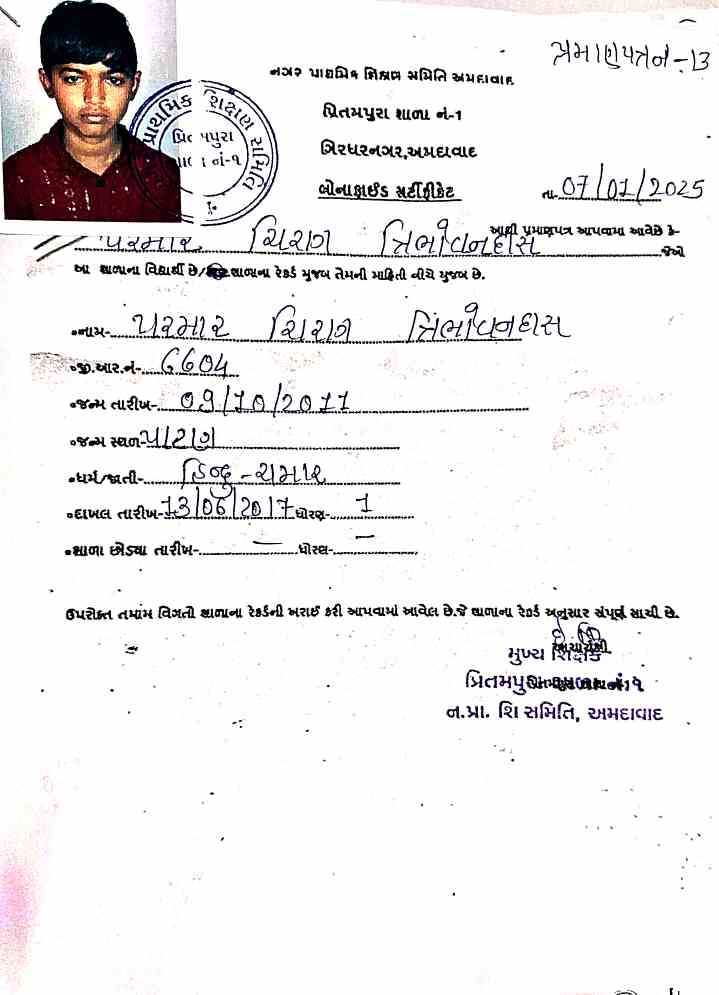 પ્રમાણપત્ર નં - 13
નગર પ્રાથમિક શિક્ષણ સમિતિ અમદાવાદ
પ્રિતમપુરા શાળા નં-1
ગિરધરનગર,અમદાવાદ
બોનાફાઈડ સર્ટીફીકેટ
તા. 07/01/2025
આથી પ્રમાણપત્ર આપવામા આવેછે કે-
પરમાર ચિરાગ ત્રિભોવનદાસ જેઓ
આ શાળાના વિદ્યાર્થી છે/ શાળાના રેકર્ડ મુજબ તેમની માહિતી નીચે મુજબ છે.
•નામ- પરમાર ચિરાગ ત્રિભોવનદાસ
•જી.આર.નં- 6604
•જન્મ તારીખ- 09/10/2011
•જન્મ સ્થળ- પાટણ
•ધર્મ/જાતી- હિન્દુ - ચમાર
•દાખલ તારીખ- 13/06/2017 ધોરણ- 1
•શાળા છોડ્યા તારીખ- — ધોરણ- —
ઉપરોક્ત તમામ વિગતો શાળાના રેકર્ડની ખરાઈ કરી આપવામાં આવેલ છે.જે શાળાના રેકર્ડ અનુસાર સંપૂર્ણ સાચી છે.
મુખ્ય શિક્ષક
પ્રિતમપુરા શાળા નં.૧
ન.પ્રા. શિ સમિતિ, અમદાવાદ